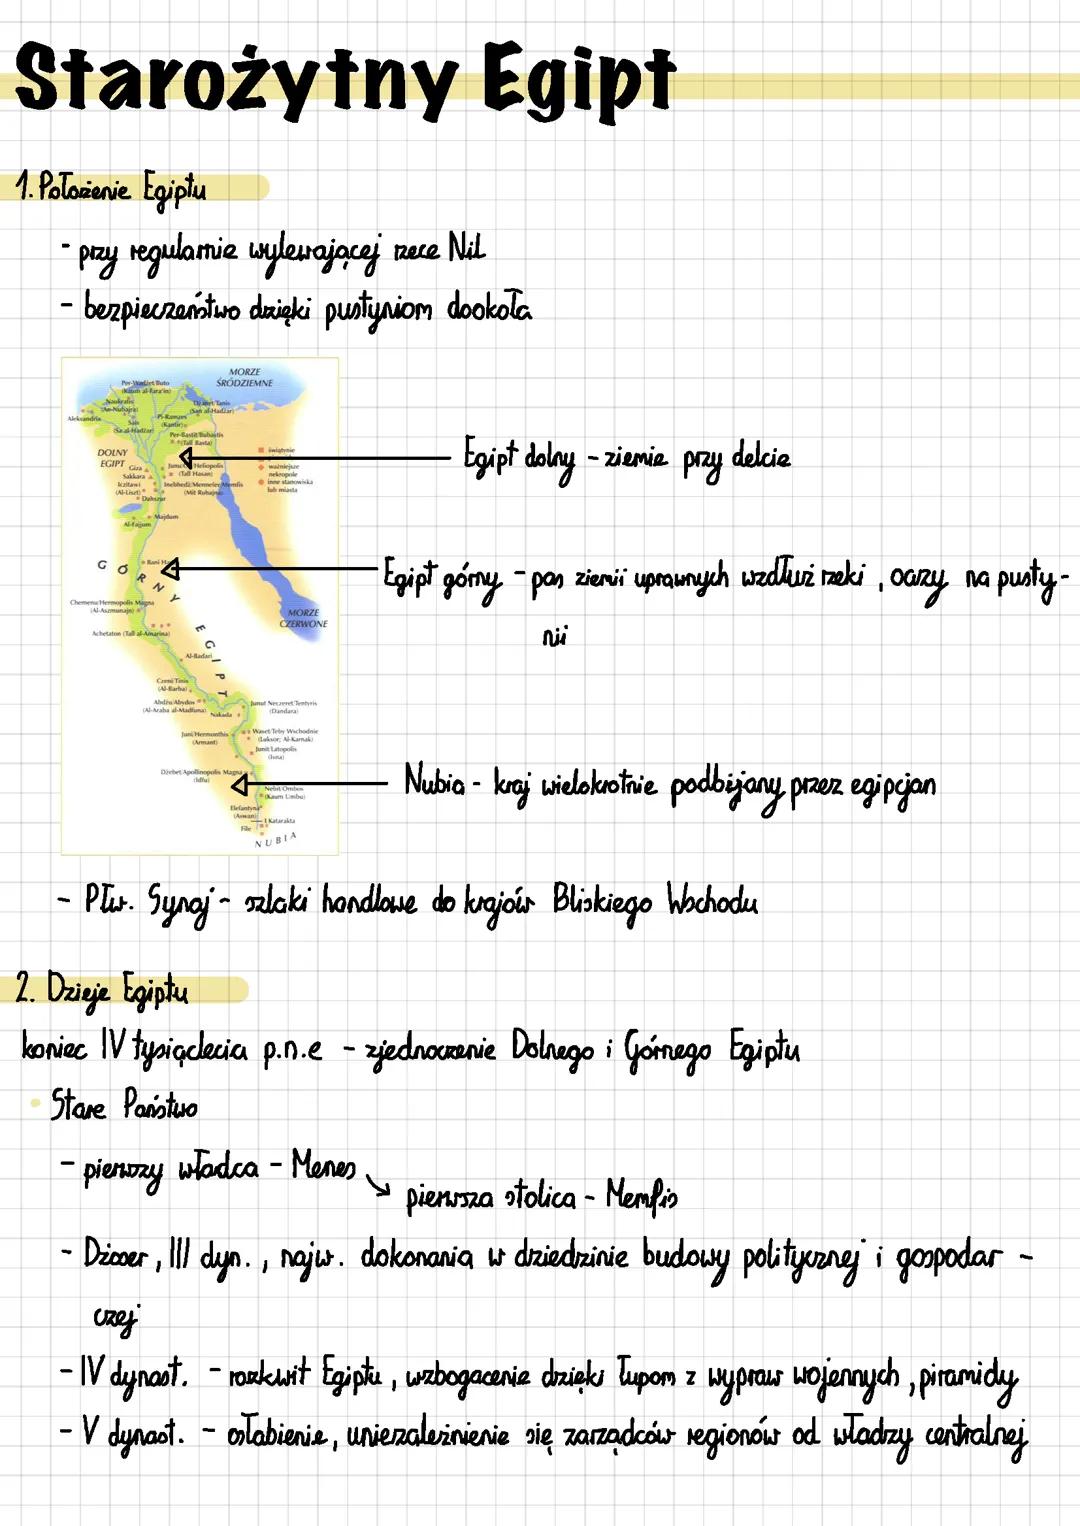 Starożytny Egipt
1. Położenie Egiptu
- przy regularnie wylewającej rzece Nil
- bezpieczeństwo dzięki pustyniom dookoła
MORZE
ŚRÓDZIEMNE
Per-Wadżet/Buto
(Kaum al-Fara'in)
Naukratis
(An-Nubajra)
Dżanet/Tanis
(San al-Hadżar)
Aleksandria
Sais
(Sa al-Hadżar)
Pi-Ramzes
(Kantir)
Per-Bastit/Bubastis
(Tall Basta)
DOLNY
EGIPT
świątynie
ważniejsze
nekropole
inne stanowiska
lub miasta
Giza
Heliopolis
(Tall Hasan)
Sakkara
Iczitawi
(Al-Liszt)
Inebhedż/Mennefer/Memfis
(Mit Ruhajna)
Dahszur
Majdum
Al-Fajjum
Egipt dolny - ziemie przy delcie
GÓRNY EGIPT
Bani
Egipt górny - pas ziemii uprawnych wzdłuż rzeki, oazy na pusty-
nii
Chemenu/Hermopolis Magna
(Al-Aszmunajn)
MORZE
CZERWONE
Achetaton (Tall al-Amarina)
Al-Badari
Czeni/Tinis
(Al-Barba)
Abdżu/Abydos
(Al-Araba al-Madfuna)
Nakada
Junut Neczeret/Tentyris
(Dandara)
Juni/Hermonthis
(Armant)
Waset/Teby Wschodnie
(Luksor, Al-Karnak)
Junit/Latopolis
(Isna)
Dżebet/Apollinopolis Magna
(Idfu)
Nebit/Ombos
(Kaum Umbu)
Elefantyna
(Aswan)
I Katarakta
File
NUBIA
Nubia - kraj wielokrotnie podbijany przez egipcjan
- Płw. Synaj - szlaki handlowe do krajów Bliskiego Wschodu
2. Dzieje Egiptu
koniec IV tysiąclecia p.n.e - zjednoczenie Dolnego i Górnego Egiptu
• Stare Państwo
- pierwszy władca - Menes
pierwsza stolica - Memfis
- Dżoser, III dyn., najw. dokonania w dziedzinie budowy politycznej i gospodar -
czej
- IV dynast. - rozkwit Egiptu, wzbogacenie dzięki łupom z wypraw wojennych, piramidy
- V dynast. - osłabienie, uniezależnienie się zarządców regionów od władzy centralnej